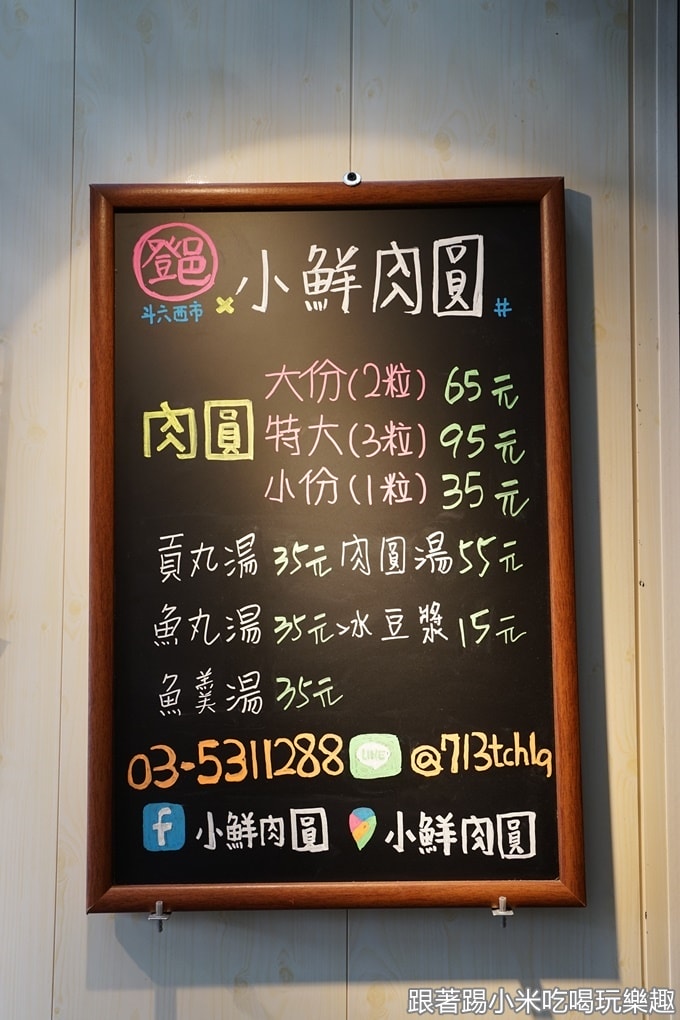 登邑
斗六西市 × 小鮮肉圓 #
肉圓
大份(2粒) 65元
特大(3粒) 95元
小份(1粒) 35元
貢丸湯 35元 肉圓湯 55元
魚丸湯 35元 冰豆漿 15元
魚羹湯 35元
03-5311288 LINE @713tchlq
f 小鮮肉圓 小鮮肉圓
跟著踢小米吃喝玩樂趣